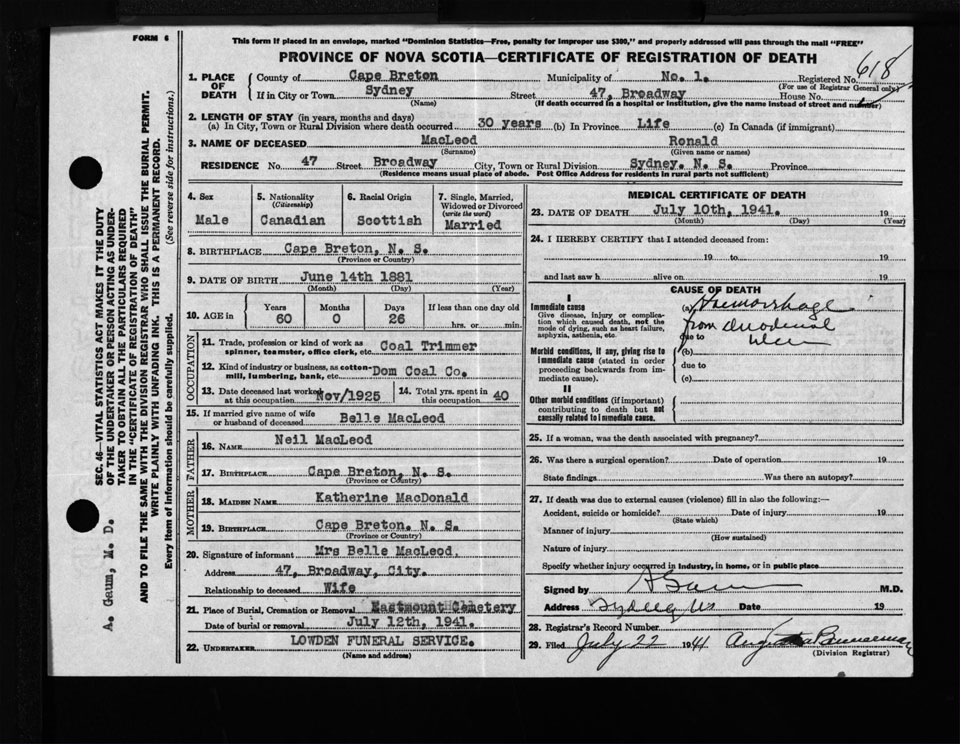 FORM 6
This form if placed in an envelope, marked "Dominion Statistics—Free, penalty for improper use $300," and properly addressed will pass through the mail "FREE"
PROVINCE OF NOVA SCOTIA—CERTIFICATE OF REGISTRATION OF DEATH
1. PLACE OF DEATH
County of Cape Breton Municipality of No. 1. Registered No. 618
(For use of Registrar General only)
If in City or Town Sydney Street 47, Broadway House No.
(Name) (If death occurred in a hospital or institution, give the name instead of street and number)
2. LENGTH OF STAY (in years, months and days)
(a) In City, Town or Rural Division where death occurred 30 years (b) In Province Life (c) In Canada (if immigrant)
3. NAME OF DECEASED MacLeod Ronald
(Surname) (Given name or names)
RESIDENCE No. 47 Street Broadway City, Town or Rural Division Sydney. N. S. Province
(Residence means usual place of abode. Post Office Address for residents in rural parts not sufficient)
4. Sex
Male
5. Nationality
(Citizenship)
Canadian
6. Racial Origin
Scottish
7. Single, Married, Widowed or Divorced
(write the word)
Married
8. BIRTHPLACE Cape Breton, N. S.
(Province or Country)
9. DATE OF BIRTH June 14th 1881
(Month) (Day) (Year)
10. AGE in
Years Months Days If less than one day old
60 0 26 hrs. or min.
OCCUPATION
11. Trade, profession or kind of work as
spinner, teamster, office clerk, etc. Coal Trimmer
12. Kind of industry or business, as cotton-
mill, lumbering, bank, etc. Dom Coal Co.
13. Date deceased last worked at this occupation Nov/1925
14. Total yrs. spent in this occupation 40
15. If married give name of wife
or husband of deceased Belle MacLeod
FATHER
16. NAME Neil MacLeod
17. BIRTHPLACE Cape Breton, N. S.
(Province or Country)
MOTHER
18. MAIDEN NAME Katherine MacDonald
19. BIRTHPLACE Cape Breton. N. S.
(Province or Country)
20. Signature of informant Mrs Belle MacLeod.
Address 47, Broadway, City.
Relationship to deceased Wife
21. Place of Burial, Cremation or Removal Eastmount Cemetery
Date of burial or removal July 12th, 1941.
22. UNDERTAKER LOWDEN FUNERAL SERVICE.
(Name and address)
MEDICAL CERTIFICATE OF DEATH
23. DATE OF DEATH July 10th, 1941. 19
(Month) (Day) (Year)
24. I HEREBY CERTIFY that I attended deceased from:
19 to 19
and last saw h alive on 19
CAUSE OF DEATH
I
Immediate cause
Give disease, injury or complication which caused death, not the mode of dying, such as heart failure, asphyxia, asthenia, etc.
(a) Haemorrhage
from duodenal
due to
Ulcer
Morbid conditions, if any, giving rise to immediate cause (stated in order proceeding backwards from immediate cause).
(b)
due to
(c)
II
Other morbid conditions (if important) contributing to death but not causally related to immediate cause.
25. If a woman, was the death associated with pregnancy?
26. Was there a surgical operation? Date of operation 19
State findings Was there an autopsy?
27. If death was due to external causes (violence) fill in also the following:—
Accident, suicide or homicide? Date of injury 19
(State which)
Manner of injury
(How sustained)
Nature of injury
Specify whether injury occurred in industry, in home, or in public place
Signed by A Gaum M.D.
Address Sydney NS Date 19
28. Registrar's Record Number
29. Filed July 22 1941
(Division Registrar)
SEC. 46—VITAL STATISTICS ACT MAKES IT THE DUTY
OF THE UNDERTAKER OR PERSON ACTING AS UNDER-
TAKER TO OBTAIN ALL THE PARTICULARS REQUIRED
IN THE "CERTIFICATE OF REGISTRATION OF DEATH"
AND TO FILE THE SAME WITH THE DIVISION REGISTRAR WHO SHALL ISSUE THE BURIAL PERMIT.
WRITE PLAINLY WITH UNFADING INK. THIS IS A PERMANENT RECORD.
Every item of information should be carefully supplied. (See reverse side for instructions.)
A. Gaum, M. D.